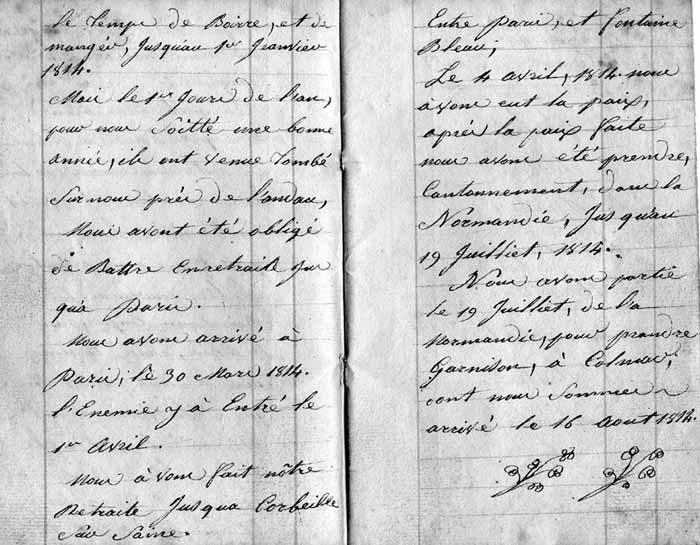 le Temps de Boirre, et de
manger, Jusquau 1er Jeanvier
1814.
Mais le 1er Joure de l'an,
pour nous Soitté une bonne
année, ils ont venue tombé
Sur nous près de Landau,
Nous avont été obligé
de Battre En retraite Jus
qu'a Paris.
Nous avons arrivé à
Paris, le 30 Mars 1814.
l'Enemie y à Entré le
1er Avril.
Nous à vons fait nôtre
Retraite Jusqua Corbeille
Sur Saine.
Entre Paris, et Fontaine
Bleau,
Le 4 avril, 1814. nous
avons eut la paix,
après la paix faite
nous avons été prendre,
Cantonnement, dans la
Normandie, Jusqu'au
19 Juilliet, 1814.
Nous avons partie
le 19 Juilliet, de la
Normandie, pour prandre
Garnison, à Colmar,
dont nous Sommes
arrivé le 16 Aout 1814.